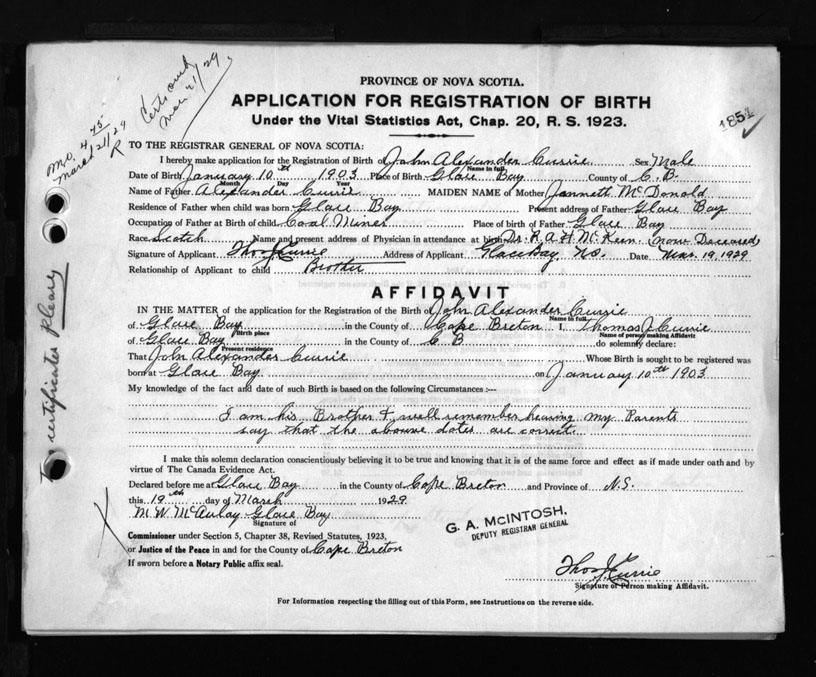 Certs only
Mar 21/29
M.O. 4 45
March 21/29
R
1851
PROVINCE OF NOVA SCOTIA.
APPLICATION FOR REGISTRATION OF BIRTH
Under the Vital Statistics Act, Chap. 20, R. S. 1923.
TO THE REGISTRAR GENERAL OF NOVA SCOTIA:
I hereby make application for the Registration of Birth of John Alexander Currie Sex Male
Name in full
Date of Birth January 10th 1903 Place of Birth Glace Bay County of C.B.
Month Day Year
Name of Father Alexander Currie MAIDEN NAME of Mother Janneth McDonald
Residence of Father when child was born Glace Bay Present address of Father Glace Bay
Occupation of Father at Birth of child Coal Miner Place of birth of Father Glace Bay
Race Scotch Name and present address of Physician in attendance at birth Dr. R.A.H. McKeen (now Deceased)
Signature of Applicant Thos J Currie Address of Applicant Glace Bay, N.S. Date Mar. 19, 1929
Relationship of Applicant to child Brother
AFFIDAVIT
IN THE MATTER of the application for the Registration of the Birth of John Alexander Currie
Name in full
of Glace Bay in the County of Cape Breton I, Thomas J. Currie
Birth place Name of person making Affidavit
of Glace Bay in the County of C B do solemnly declare:
Present residence
That John Alexander Currie Whose Birth is sought to be registered was
born at Glace Bay on January 10th 1903
My knowledge of the fact and date of such Birth is based on the following Circumstances :—
I am his Brother & well remember hearing my Parents
say that the abouve dates are correct
I make this solemn declaration conscientiously believing it to be true and knowing that it is of the same force and effect as if made under oath and by
virtue of The Canada Evidence Act.
Declared before me at Glace Bay in the County of Cape Breton and Province of N.S.
this 19th day of March 1929
M. W. McAulay Glace Bay
Signature of
Commissioner under Section 5, Chapter 38, Revised Statutes, 1923,
or Justice of the Peace in and for the County of Cape Breton
If sworn before a Notary Public affix seal.
G. A. McINTOSH,
DEPUTY REGISTRAR GENERAL
Thos J. Currie
Signature of Person making Affidavit.
For Information respecting the filling out of this Form, see Instructions on the reverse side.
certificates